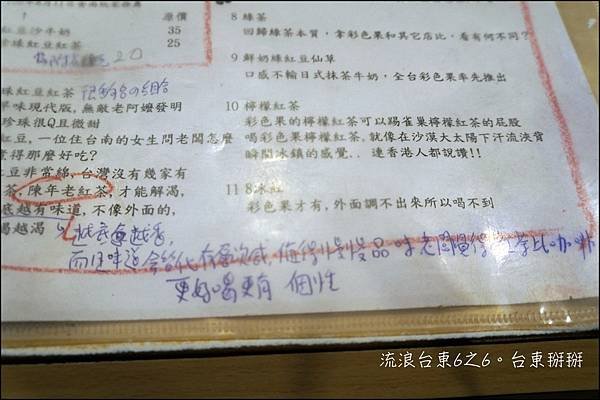 原價
紅豆沙牛奶 35
珍珠紅豆紅茶 25
20
珠紅豆紅茶
早味現代版,無敵老阿嬤發明
珍珠很Q且微甜
紅豆,一位住台南的女生問老闆怎麼
覺得那麼好吃?
紅豆非常綿,台灣沒有幾家有
茶,陳年老紅茶,才能解渴,
底越有味道,不像外面的,
喝越渴
8 綠茶
回歸綠茶本質,拿彩色果和其它店比,看有何不同?
9 鮮奶綠紅豆仙草
口感不輸日式抹茶牛奶,全台彩色果率先推出
10 檸檬紅茶
彩色果的檸檬紅茶可以踢雀巢檸檬紅茶的屁股
喝彩色果的檸檬紅茶,就像在沙漠大太陽下汗流浹背
瞬間冰鎮的感覺.. 連香港人都說讚!!
11 8冰紅
彩色果才有,外面調不出來所以喝不到
越底會越香,
而且味道會給化有層次感,值得慢慢品味 老闆覺得紅茶比咖啡
更好喝更有 個性
流浪台東6之6。台東掰掰